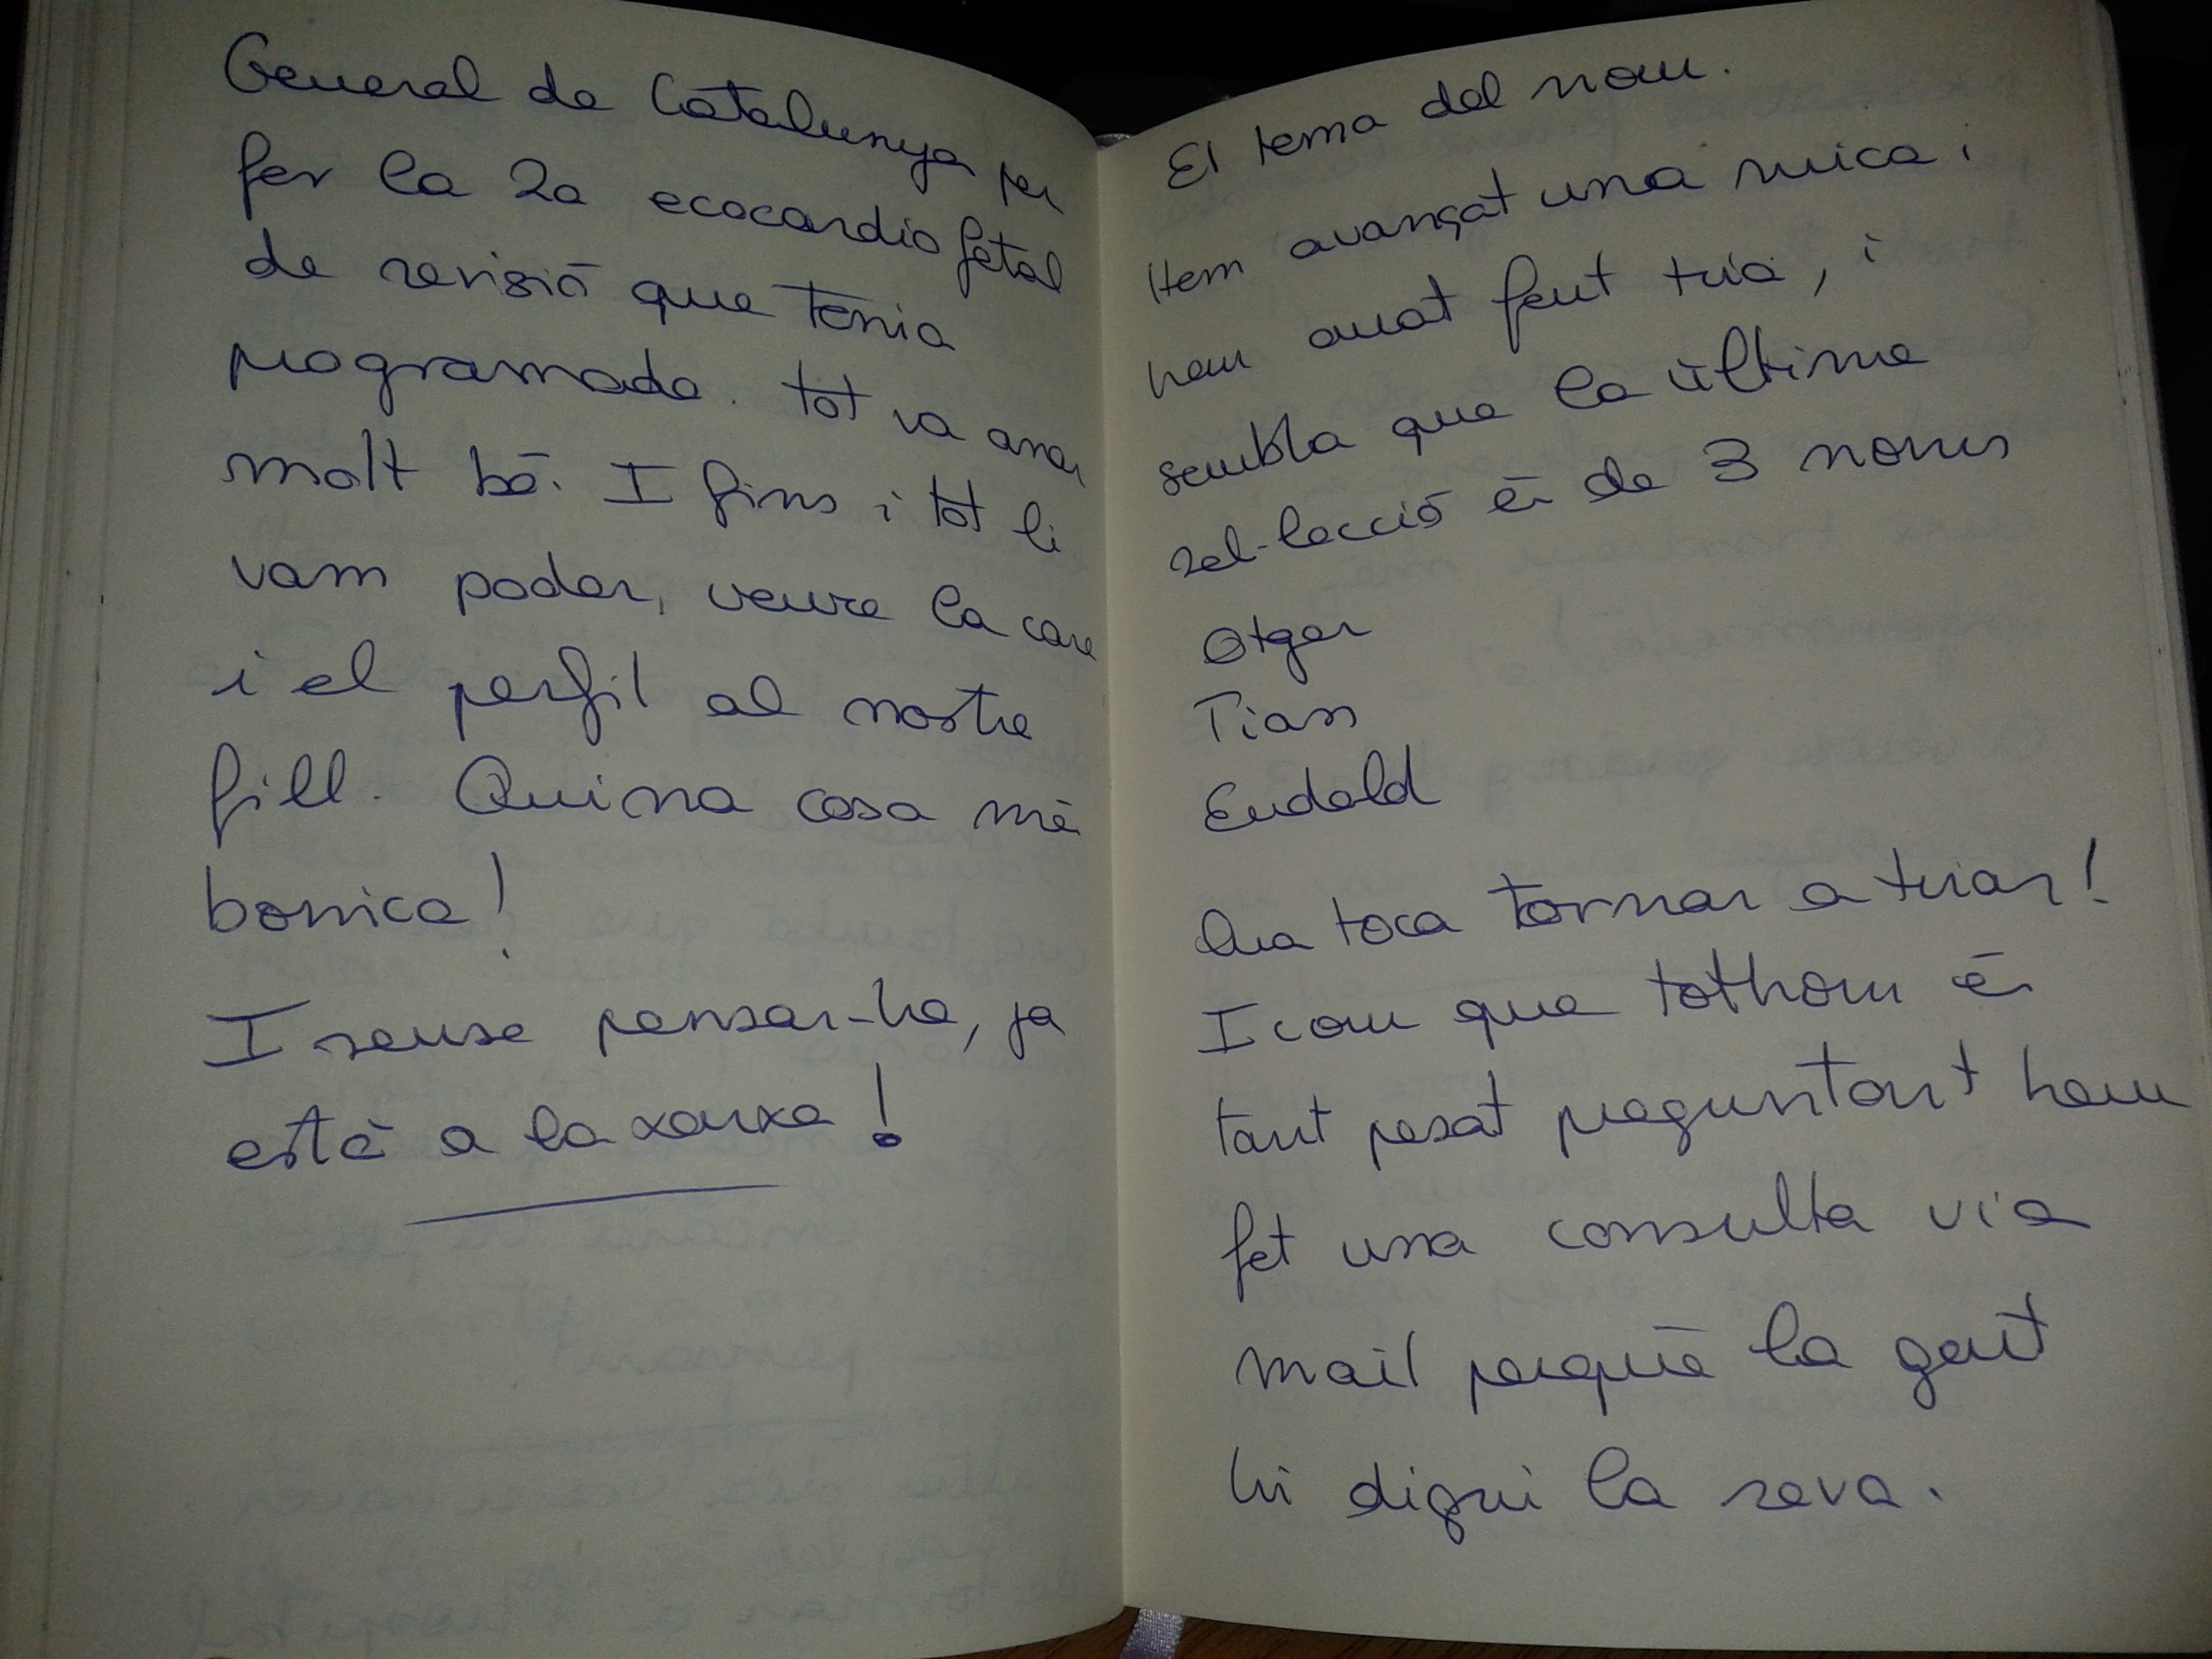 General de Catalunya per
fer la 2a ecocardio fetal
de revisió que tenia
programada. tot va anar
molt bé. I fins i tot li
vam poder, veure la cara
i el perfil al nostre
fill. Quina cosa mé
bonica!
I sense pensar-ho, ja
està a la xarxa!
El tema del nom.
Hem avançat una mica i
hem anat fent tria, i
sembla que la última
sel·lecció és de 3 noms
Otger
Tian
Eudald
Ara toca tornar a triar!
I com que tothom és
tant pesat preguntant hem
fet una consulta via
mail perquè la gent
hi digui la seva.